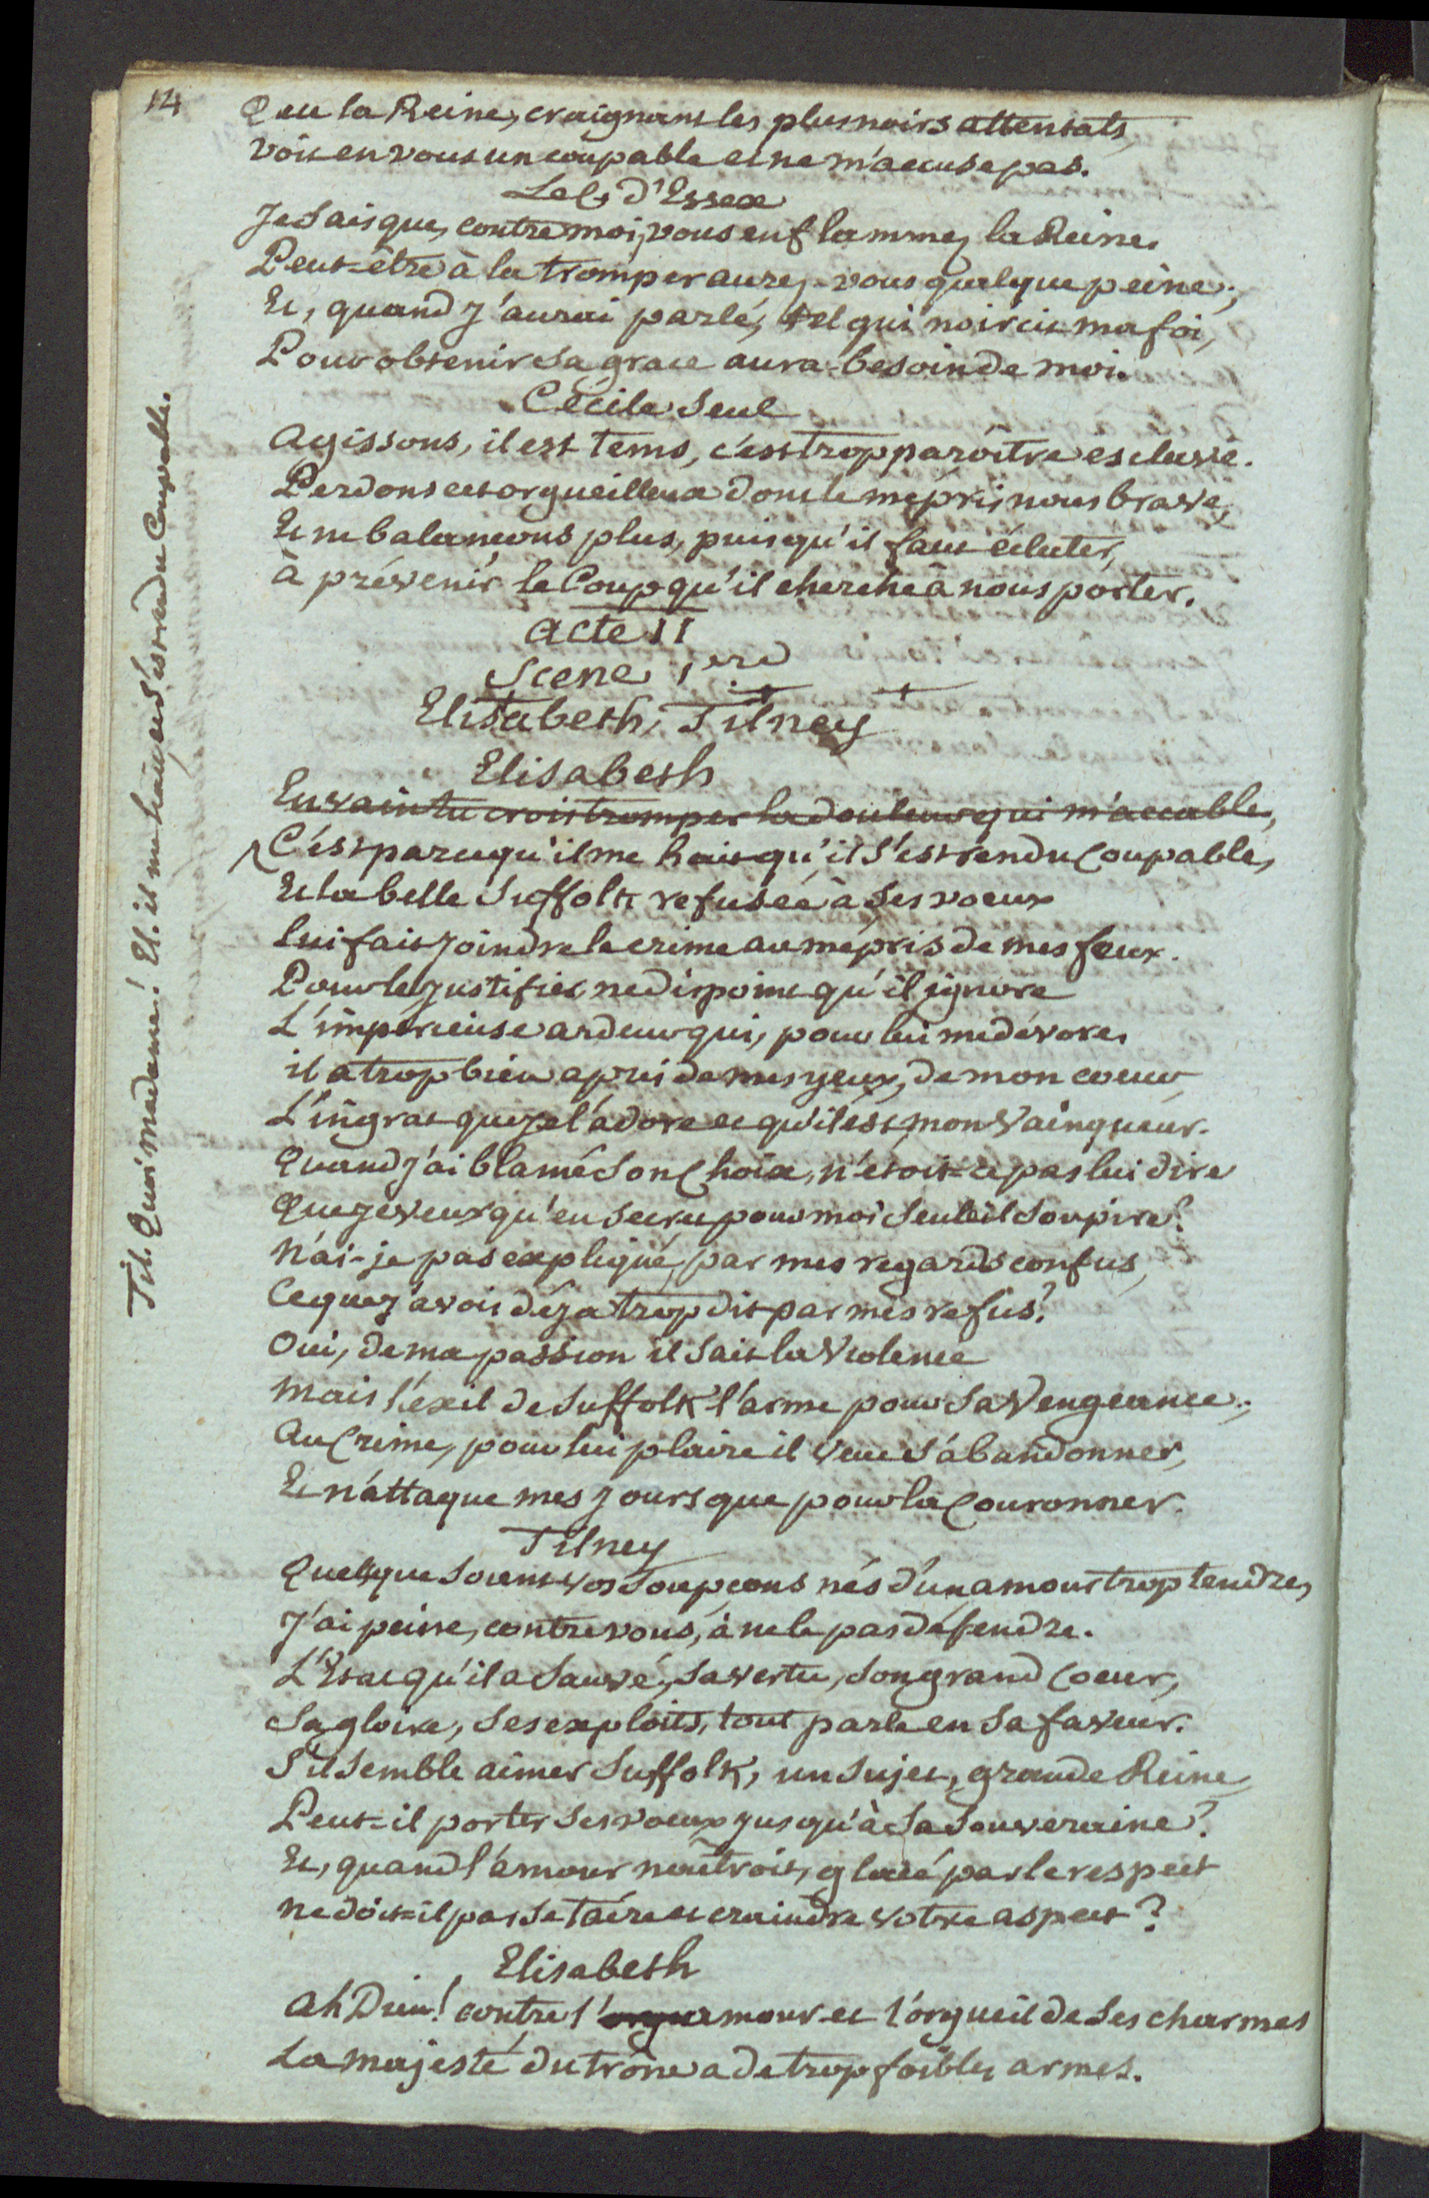 14
Que la Reine, craignant les plus noirs attentats,
voit en vous un coupable et ne m'accuse pas.
Le C. d'Essex
Je sais que, contre moi, vous enflammez la Reine.
Peut-être à la tromper aurez-vous quelque peine;
Et, quand j'aurai parlé, tel qui noircit ma foi,
Pour obtenir sa grace aura besoin de moi.
Cécile seul
Agissons, il est tems, c'est trop paroître esclave.
Perdons cet orgueilleux dont le mépris nous brave,
Et ne balançons plus, puisqu'il faut éclater,
à prévenir le Coup qu'il cherche à nous porter.
Acte II
Scene 1ere
Elisabeth, Tilney
Elisabeth
En vain tu crois tromper la douleur qui m'accable,
C'est parce qu'il me hait qu'il s'est rendu Coupable,
Et la belle Suffolk refusée à ses voeux
lui fait joindre le crime au mépris de mes feux.
Pour le justifier ne dis point qu'il ignore
L'impérieuse ardeur qui, pour lui me dévore.
il a trop bien apris de mes yeux, de mon coeur
L'ingrat que je l'adore et qu'il est mon Vainqueur.
Quand j'ai blamé son Choix, n'étoit-ce pas lui dire
Que je veux qu'en secret pour moi seule il soupire?
N'ai-je pas expliqué, par mes regards confus,
Ce que j'avois déja trop dit par mes refus?
Oui, de ma passion il sait la Violence
Mais l'exil de Suffolk l'arme pour sa Vengeance;
Au Crime, pour lui plaire il veut s'abandonner,
Et n'attaque mes jours que pour la Couronner.
Tilney
Quelque soient vos soupçons nés d'un amour trop tendre,
J'ai peine, contre vous, à ne le pas défendre.
L'Etat qu'il a sauvé, sa vertu, son grand Coeur,
Sa gloire, ses exploits, tout parle en sa faveur.
S'il semble aimer Suffolk, un sujet, grande Reine
Peut-il porter ses voeux jusqu'à sa souveraine?
Et, quand l'amour naîtroit, glacé par le respect
ne doit-il pas se taire et craindre votre aspect?
Elisabeth
Ah Dieu! contre l'amour et l'orgueil de ses charmes
La majesté du trône a de trop foibles armes.
Til. Quoi madame! El. il me hait, et s'est rendu Coupable.